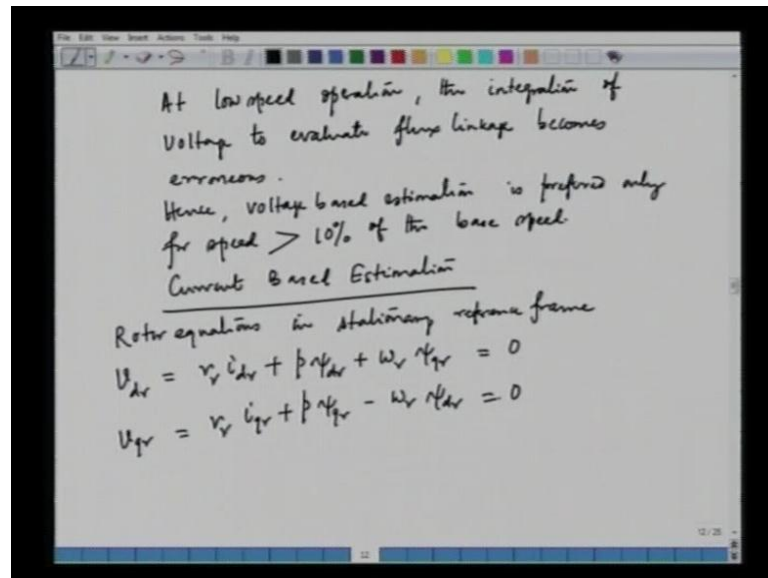 File Edit View Insert Actions Tools Help
At low speed operation, the integration of
voltage to evaluate flux linkage becomes
erroneous.
Hence, voltage based estimation is preferred only
for speed > 10% of the base speed.
Current Based Estimation
Rotor equations in stationary reference frame
v_dr = r_r i_dr + pψ_dr + ω_r ψ_qr = 0
v_qr = r_r i_qr + pψ_qr - ω_r ψ_dr = 0
12/25
12